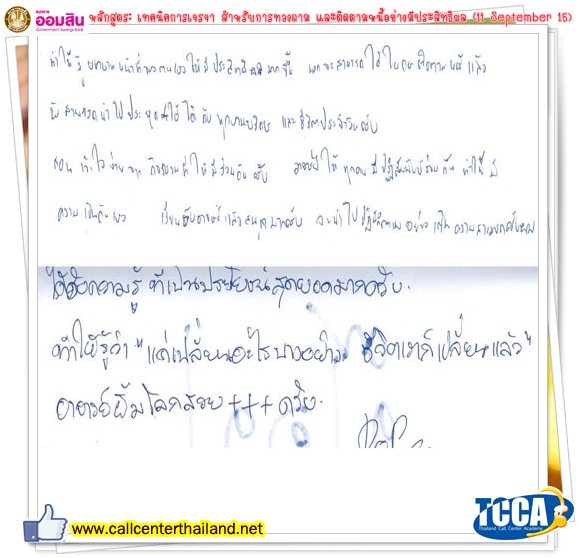 ธนาคาร
ออมสิน
Government Savings Bank
หลักสูตร: เทคนิคการเจรจา สำหรับการทวงถาม และติดตามหนี้อย่างมีประสิทธิผล (11 September 15)
ทำให้รู้บทบาทหน้าที่ของตนเองให้มีประสิทธิผลมากขึ้น นอกจะสามารถใช้ในการติดตามหนี้แล้ว
ยังสามารถนำไปประยุกต์ใช้ได้กับทุกงานบริการ และชีวิตประจำวันครับ
สอนเข้าใจง่าย จากกิจกรรมทำให้มีส่วนกันครับ อาจารย์ให้ทุกคนมีปฏิสัมพันธ์ร่วมกัน ทำให้มี
ความเป็นกันเอง เรียนกับอาจารย์แล้วสนุกมากครับ จะนำไปปฏิบัติตาม
ได้รับความรู้ ที่เป็นประโยชน์สุดยอดมากครับ.
ทำให้รู้ว่า "แค่เปลี่ยนอะไรบางอย่าง ชีวิตเราก็เปลี่ยนแล้ว"
อาจารย์ยิ้มโลกสวย +++ ครับ.
www.callcenterthailand.net
TCCA
Thailand Call Center Academy